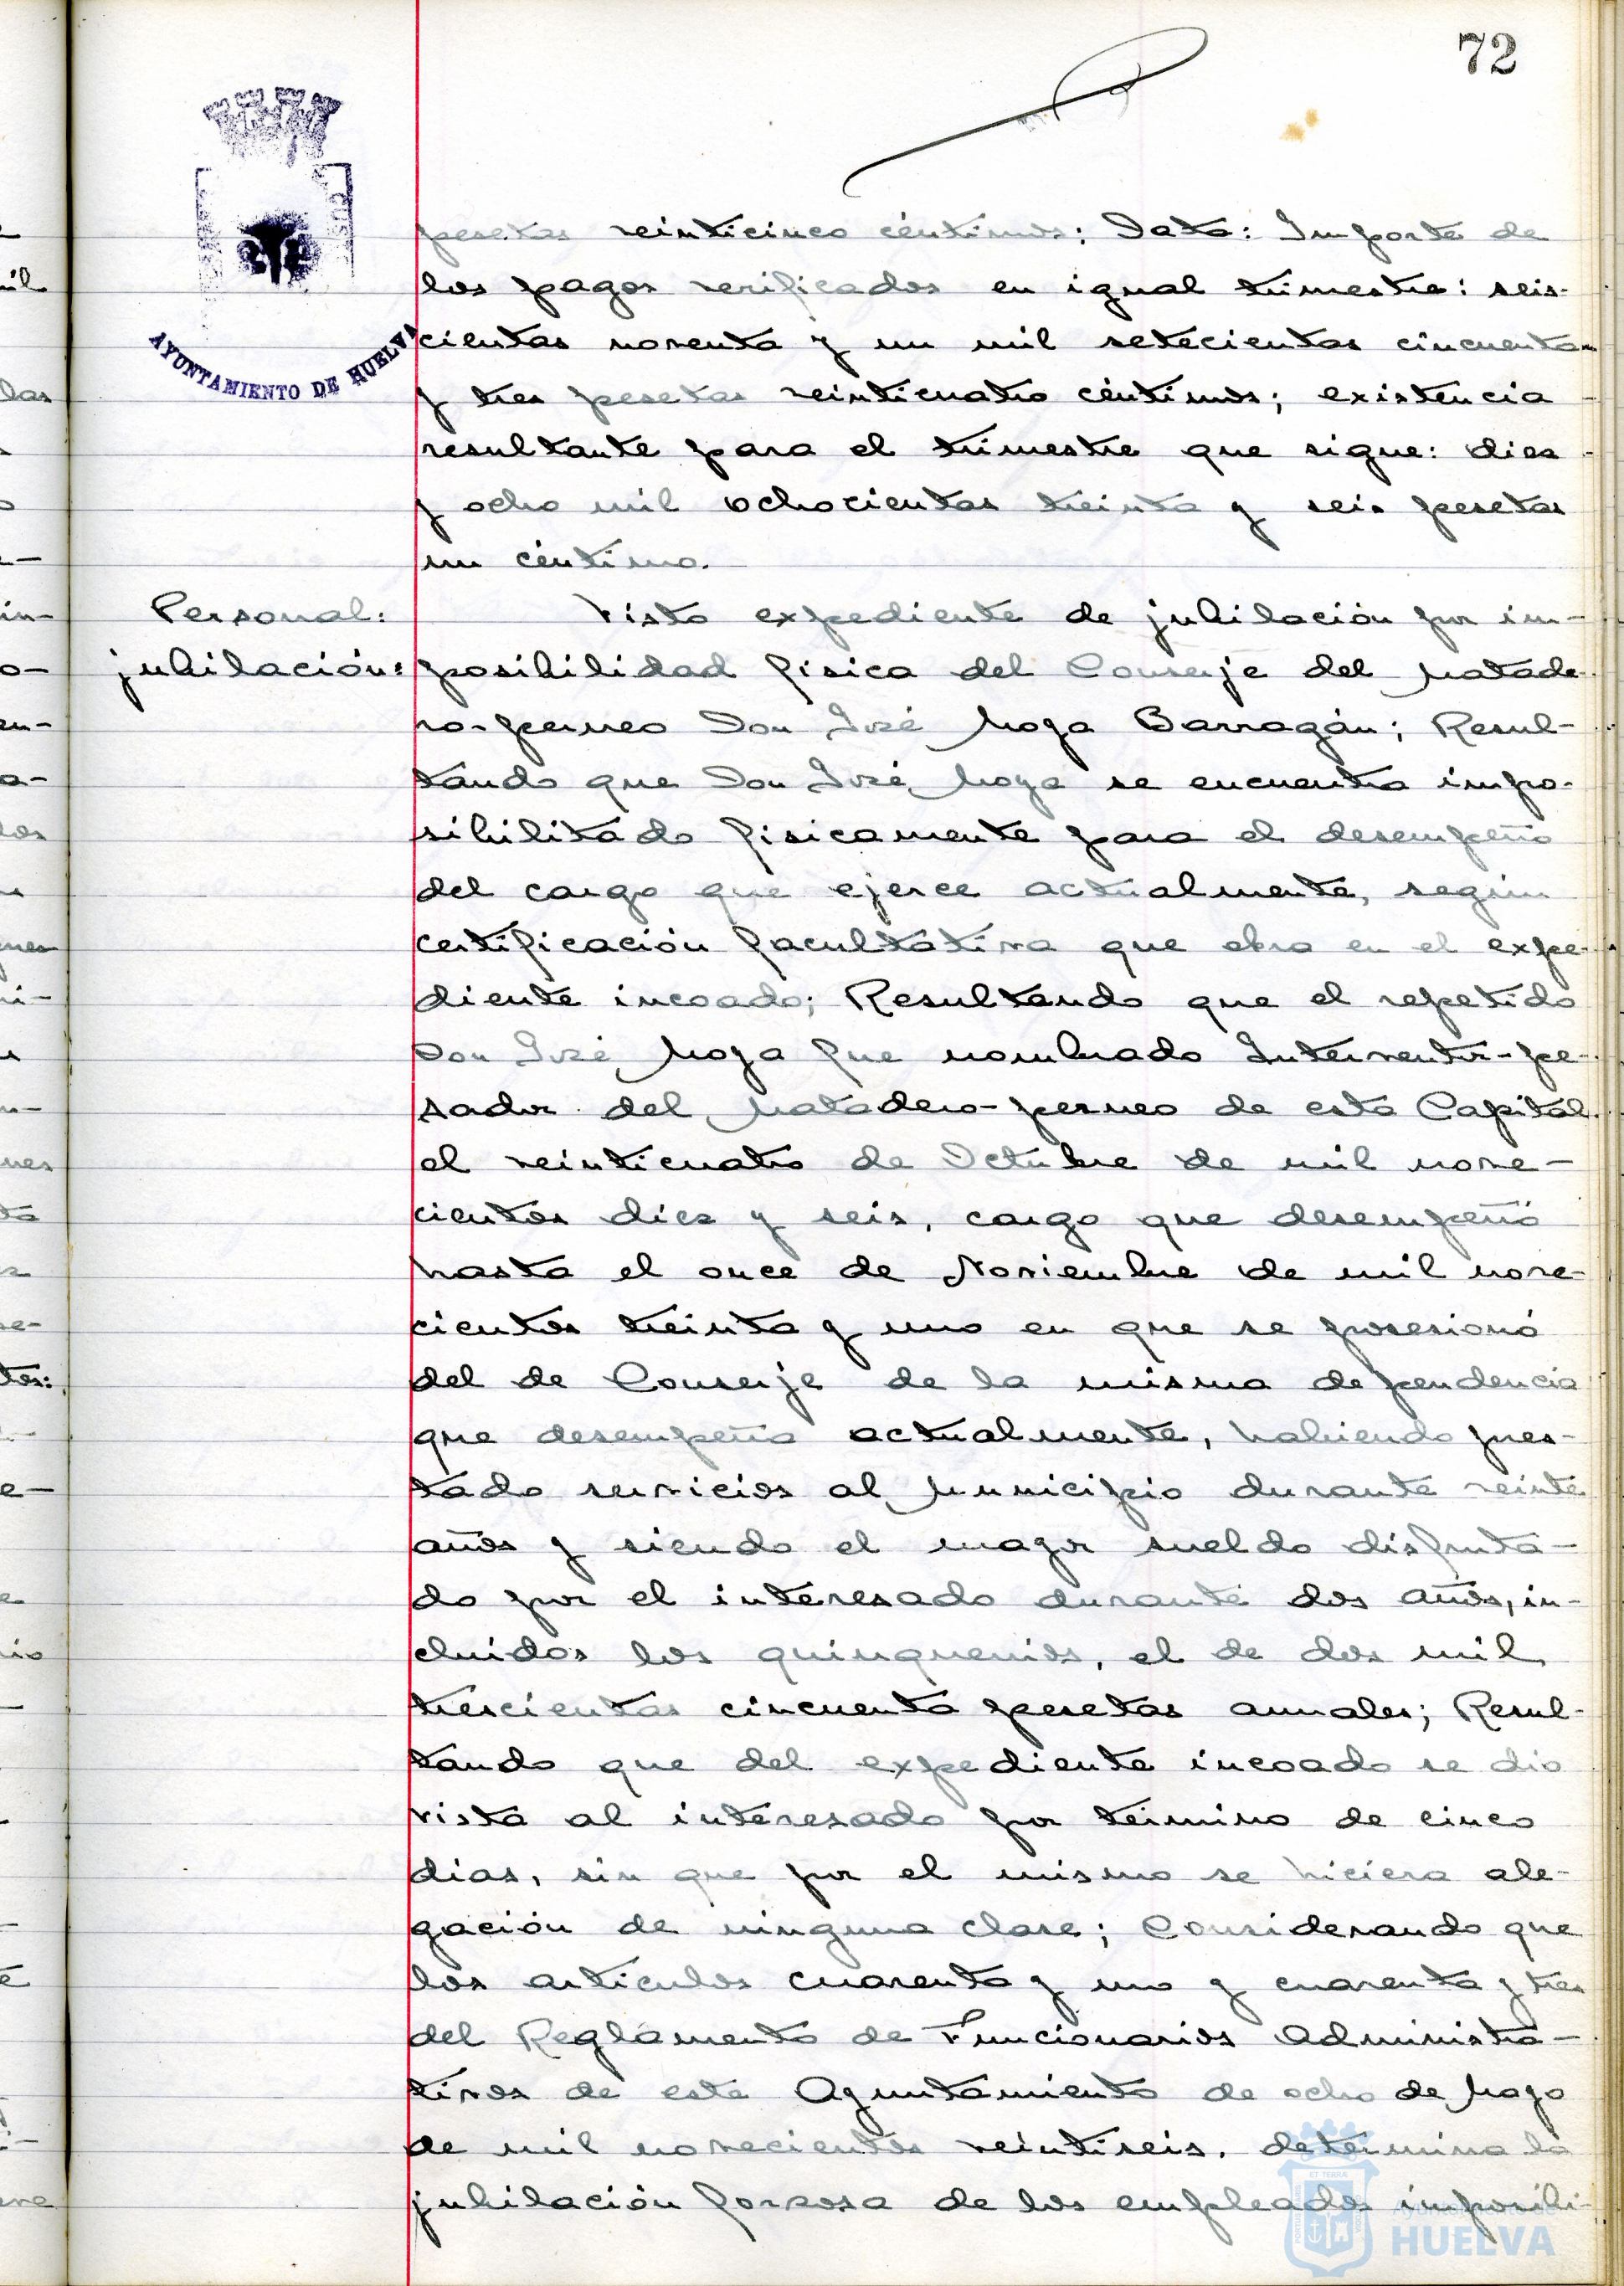 72
AYUNTAMIENTO DE HUELVA
pesetas veinticinco céntimos; Data: Importe de
los pagos verificados en igual trimestre: seis-
cientas noventa y un mil setecientas cincuenta
y tres pesetas veinticuatro céntimos; existencia
resultante para el trimestre que sigue: diez
y ocho mil ochocientas treinta y seis pesetas
un céntimo.
Personal:
jubilación:
Visto expediente de jubilación por im-
posibilidad física del Conserje del Matade-
ro-perneo Don José Moya Barragán; Resul-
tando que Don José Moya se encuentra impo-
sibilitado físicamente para el desempeño
del cargo que ejerce actualmente, según
certificación facultativa que obra en el expe-
diente incoado; Resultando que el repetido
Don José Moya fue nombrado Interventor-pe-
sador del Matadero-perneo de esta Capital
el veinticuatro de Octubre de mil nove-
cientos diez y seis, cargo que desempeñó
hasta el once de Noviembre de mil nove-
cientos treinta y uno en que se posesionó
del de Conserje de la misma dependencia
que desempeña actualmente, habiendo pres-
tado servicios al Municipio durante veinte
años y siendo el mayor sueldo disfruta-
do por el interesado durante dos años, in-
cluidos los quinquenios, el de dos mil
trescientas cincuenta pesetas anuales; Resul-
tando que del expediente incoado se dio
vista al interesado por término de cinco
días, sin que por el mismo se hiciera ale-
gación de ninguna clase; Considerando que
los artículos cuarenta y uno y cuarenta y tres
del Reglamento de Funcionarios Administra-
tivos de este Ayuntamiento de ocho de Mayo
de mil novecientos veintiseis, determina la
jubilación forzosa de los empleados imposibi-
Ayuntamiento de
HUELVA